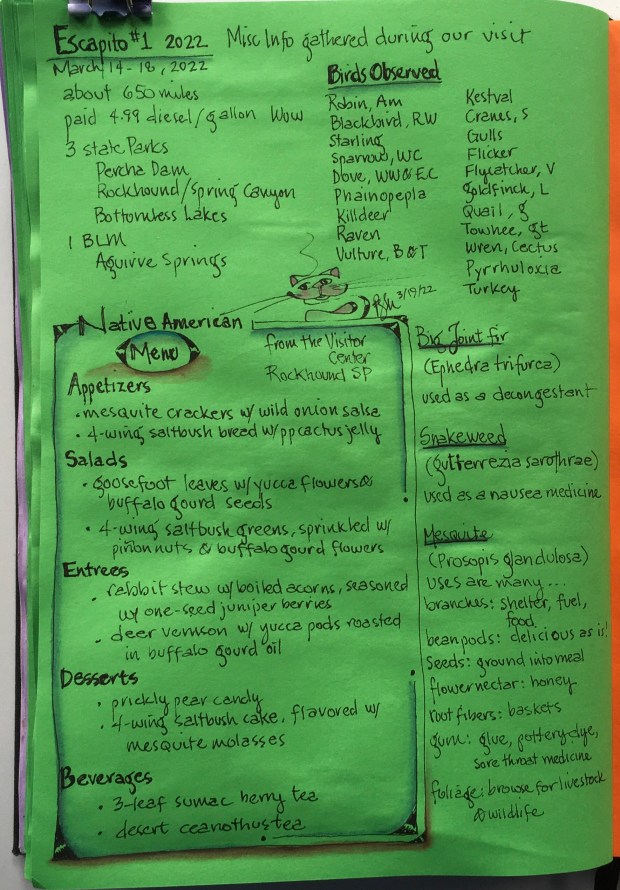 Escapito #1 2022 Misc Info gathered during our visit
March 14-18, 2022
about 650 miles
paid 4.99 diesel/gallon Wow
3 state Parks
Percha Dam
Rockhound/Spring Canyon
Bottomless Lakes
1 BLM
Aguirre Springs
Birds Observed
Robin, Am
Blackbird, RW
Starling
Sparrow, WC
Dove, WW & EC
Phainopepla
Killdeer
Raven
Vulture, B & T
Kestral
Cranes, S
Gulls
Flicker
Flycatcher, V
goldfinch, L
Quail, g
Towhee, gt
Wren, Cactus
Pyrrhuloxia
Turkey
3/19/22
Native American
Menu
from the Visitor
Center
Rockhound SP
Appetizers
• mesquite crackers w/ wild onion salsa
• 4-wing saltbush bread w/ pp cactus jelly
Salads
• goosefoot leaves w/ yucca flowers &
buffalo gourd seeds
• 4-wing saltbush greens, sprinkled w/
piñon nuts & buffalo gourd flowers
Entrees
• rabbit stew w/ boiled acorns, seasoned
w/ one-seed juniper berries
• deer venison w/ yucca pods roasted
in buffalo gourd oil
Desserts
• prickly pear candy
• 4-wing saltbush cake, flavored w/
mesquite molasses
Beverages
• 3-leaf sumac berry tea
• desert ceanothus tea
Big Joint fir
(Ephedra trifurca)
used as a decongestant
Snakeweed
(gutterrezia sarothrae)
used as a nausea medicine
Mesquite
(Prosopis glandulosa)
Uses are many...
branches: shelter, fuel,
food
bean pods: delicious as is!
Seeds: ground into meal
flower nectar: honey
root fibers: baskets
gum: glue, pottery dye,
sore throat medicine
foliage: browse for livestock
& wildlife